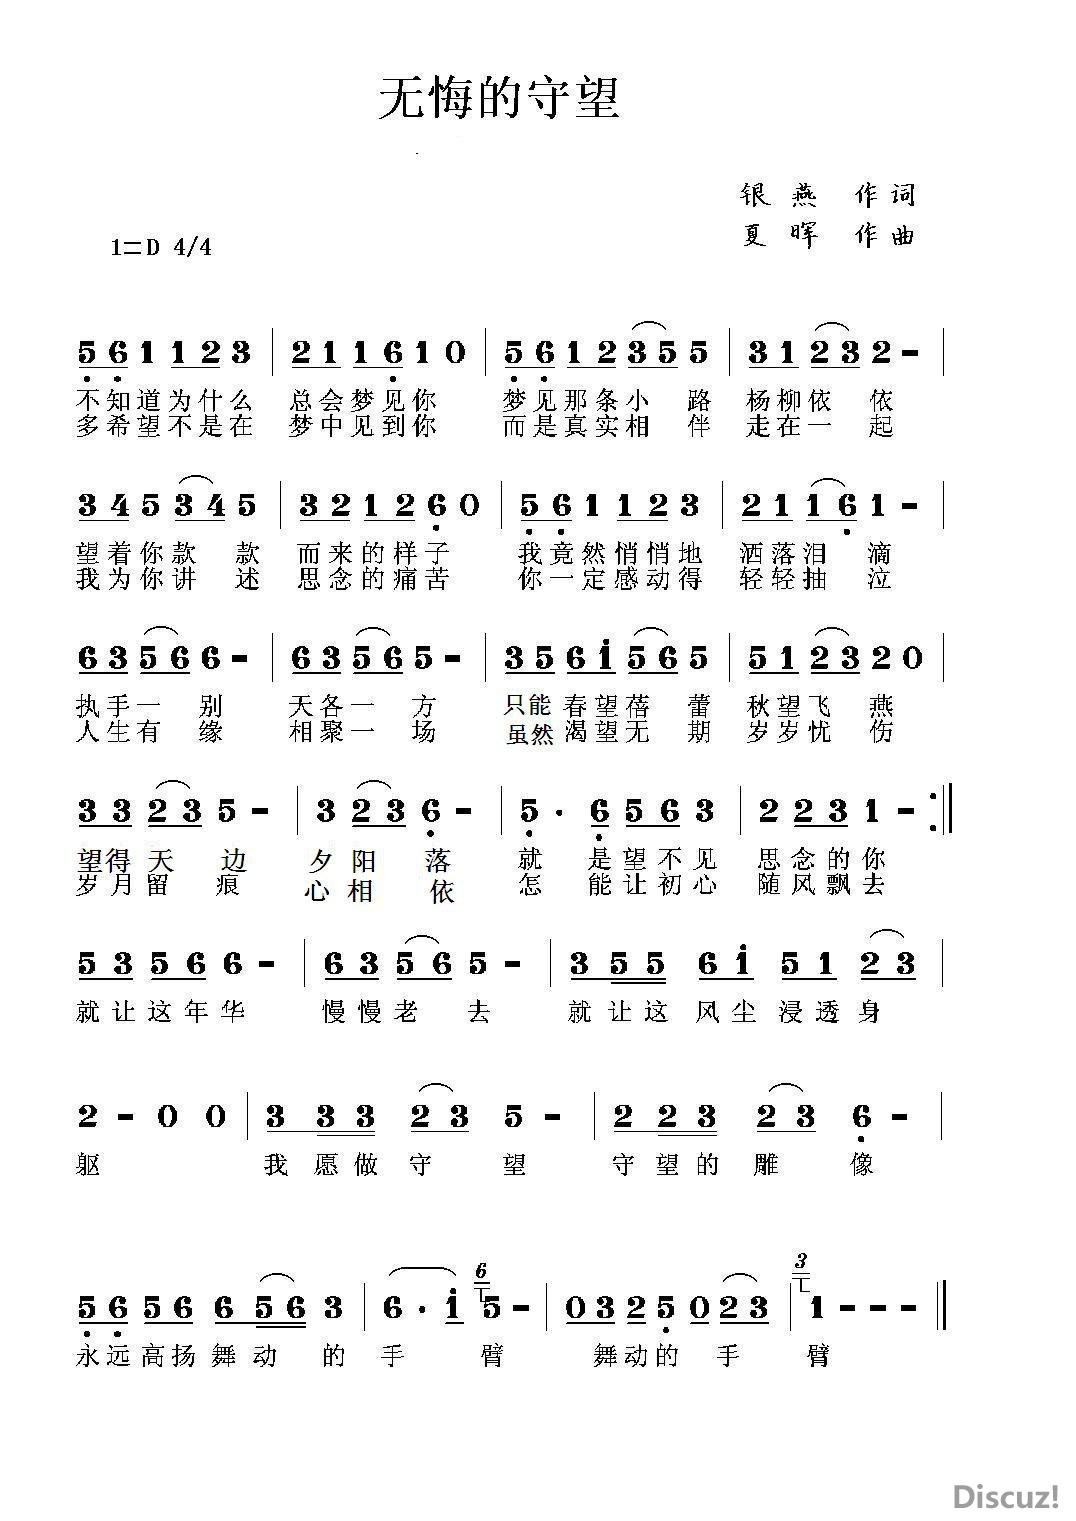 无悔的守望
银燕 作词
1=D 4/4
夏晖 作曲
5 6 1 1 2 3 | 2 1 1 6 1 0 | 5 6 1 2 3 5 5 | 3 1 2 3 2 - |
不知道为什么 总会梦见你 梦见那条小路 杨柳依依
多希望不是在 梦中见到你 而是真实相伴 走在一起
3 4 5 3 4 5 | 3 2 1 2 6 0 | 5 6 1 1 2 3 | 2 1 1 6 1 - |
望着你款款 而来的样子 我竟然悄悄地 洒落泪滴
我为你讲述 思念的痛苦 你一定感动得 轻轻抽泣
6 3 5 6 6 - | 6 3 5 6 5 - | 3 5 6 i 5 6 5 | 5 1 2 3 2 0 |
执手一别 天各一方 只能春望蓓蕾 秋望飞燕
人生有缘 相聚一场 虽然渴望无期 岁岁忧伤
3 3 2 3 5 - | 3 2 3 6 - | 5 · 6 5 6 3 | 2 2 3 1 - :||
望得天边 夕阳落 就是望不见 思念的你
岁月留痕 心相依 怎能让初心 随风飘去
5 3 5 6 6 - | 6 3 5 6 5 - | 3 5 5 6 i 5 1 2 3 |
就让这年华 慢慢老去 就让这风尘浸透身
2 - 0 0 | 3 3 3 2 3 5 - | 2 2 3 2 3 6 - |
躯 我愿做守望 守望的雕像
5 6 5 6 6 5 6 3 | 6 · i 6 5 - | 0 3 2 5 0 2 3 | 3 1 - - - ||
永远高扬舞动的手臂 舞动的手臂
Discuz!